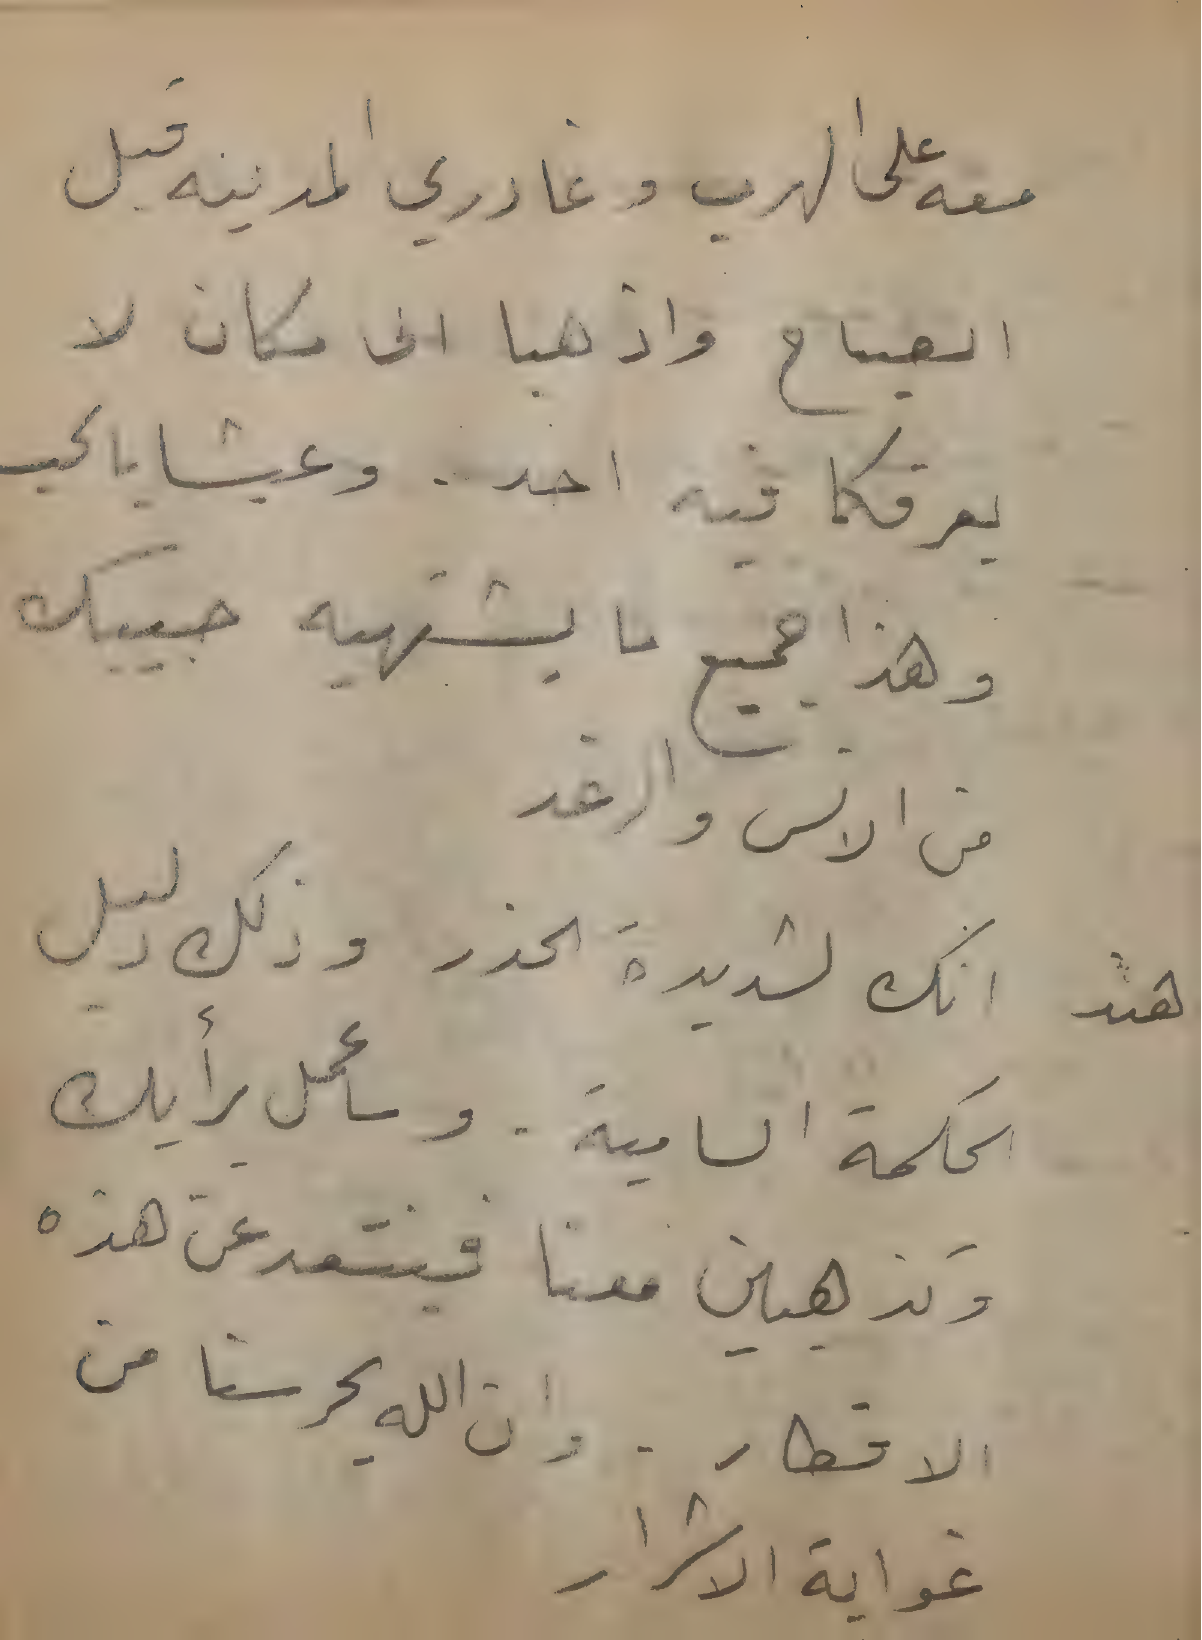 معه على الهرب وغادري المدينه قبل
الصباح واذهبا الى مكان لا
يعرفكما فيه احد . وعيشا بالحب
وهذا جميع ما يشتهيه حبيبك
من الانس والرغد
هند انك لشديدة الحذر وذلك دليل
الحكمة السامية . وسأعمل برأيك
وتذهبين معنا فنبتعد عن هذه
الاقطار . وان الله يحرسنا من
غواية الاشرار